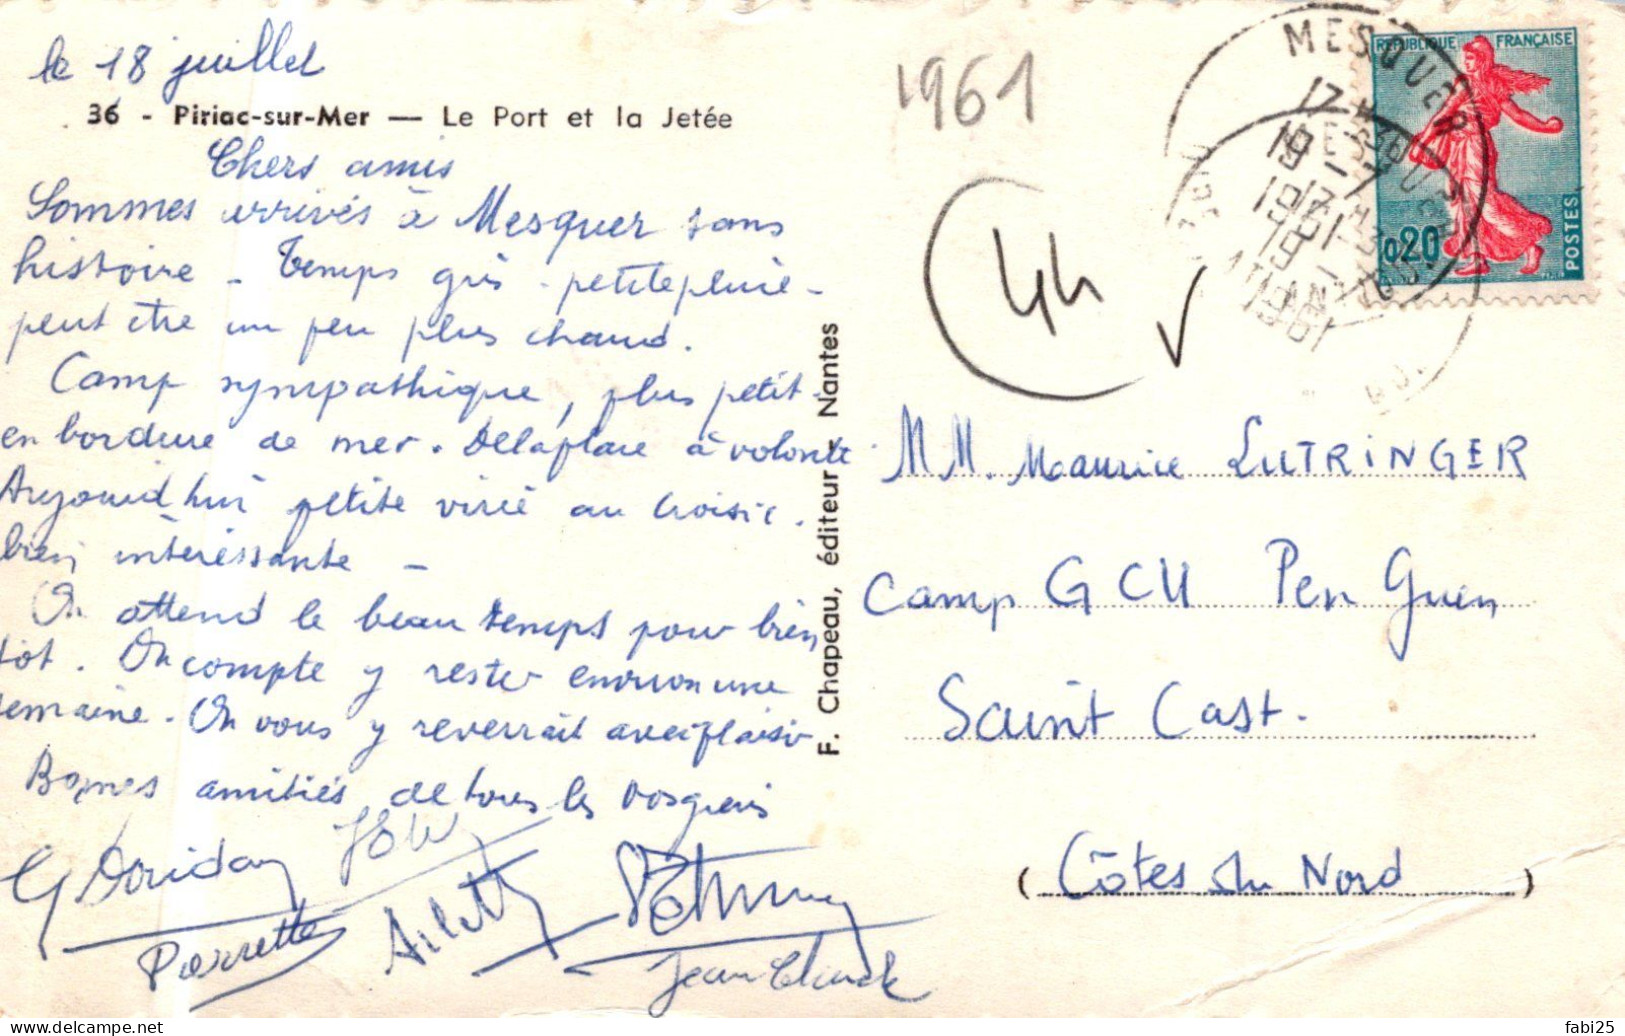 le 18 juillet
36 - Piriac-sur-Mer — Le Port et la Jetée
Chers amis
Sommes arrivés à Mesquer sans
histoire - Temps gris - petite pluie -
peut etre un peu plus chaud.
Camp sympathique, plus petit -
en bordure de mer. De la place à volonté
Aujourd'hui petite virée au Croisic.
bien intéressante -
On attend le beau temps pour bien
tot. On compte y rester environ une
semaine. On vous y reverrait avec plaisir
Bonnes amitiés de tous les vosgiens
Pierrette
Arlette
Jean Claude
F. Chapeau, éditeur - Nantes
1961
44
MESQUER
19 - 7
1961
REPUBLIQUE FRANÇAISE
0,20
POSTES
MM. Maurice LUTRINGER
Camp GCU Pen Guen
Saint Cast.
(Côtes du Nord)
fabi25